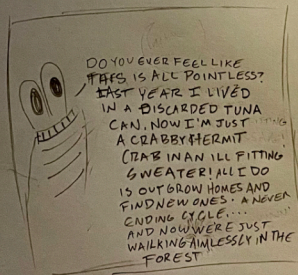 DO YOU EVER FEEL LIKE
THIS IS ALL POINTLESS?
LAST YEAR I LIVED
IN A DISCARDED TUNA
CAN, NOW I'M JUST
A CRABBY HERMIT
CRAB IN AN ILL FITTING
SWEATER! ALL I DO
IS OUT GROW HOMES AND
FIND NEW ONES. A NEVER
ENDING CYCLE....
AND NOW WERE JUST
WALKING AIMLESSLY IN THE
FOREST